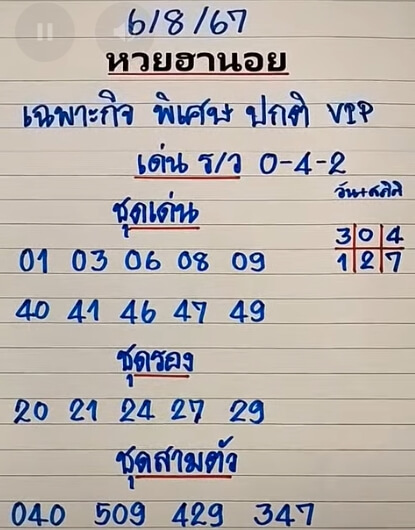 6/8/67
หวยฮานอย
เฉพาะกิจ พิเศษ ปกติ VIP
เด่น ร/ว 0-4-2
วัน+สถิติ
ชุดเด่น
3|0|4
1|2|7
01 03 06 08 09
40 41 46 47 49
ชุดรอง
20 21 24 27 29
ชุดสามตัว
040 509 429 347